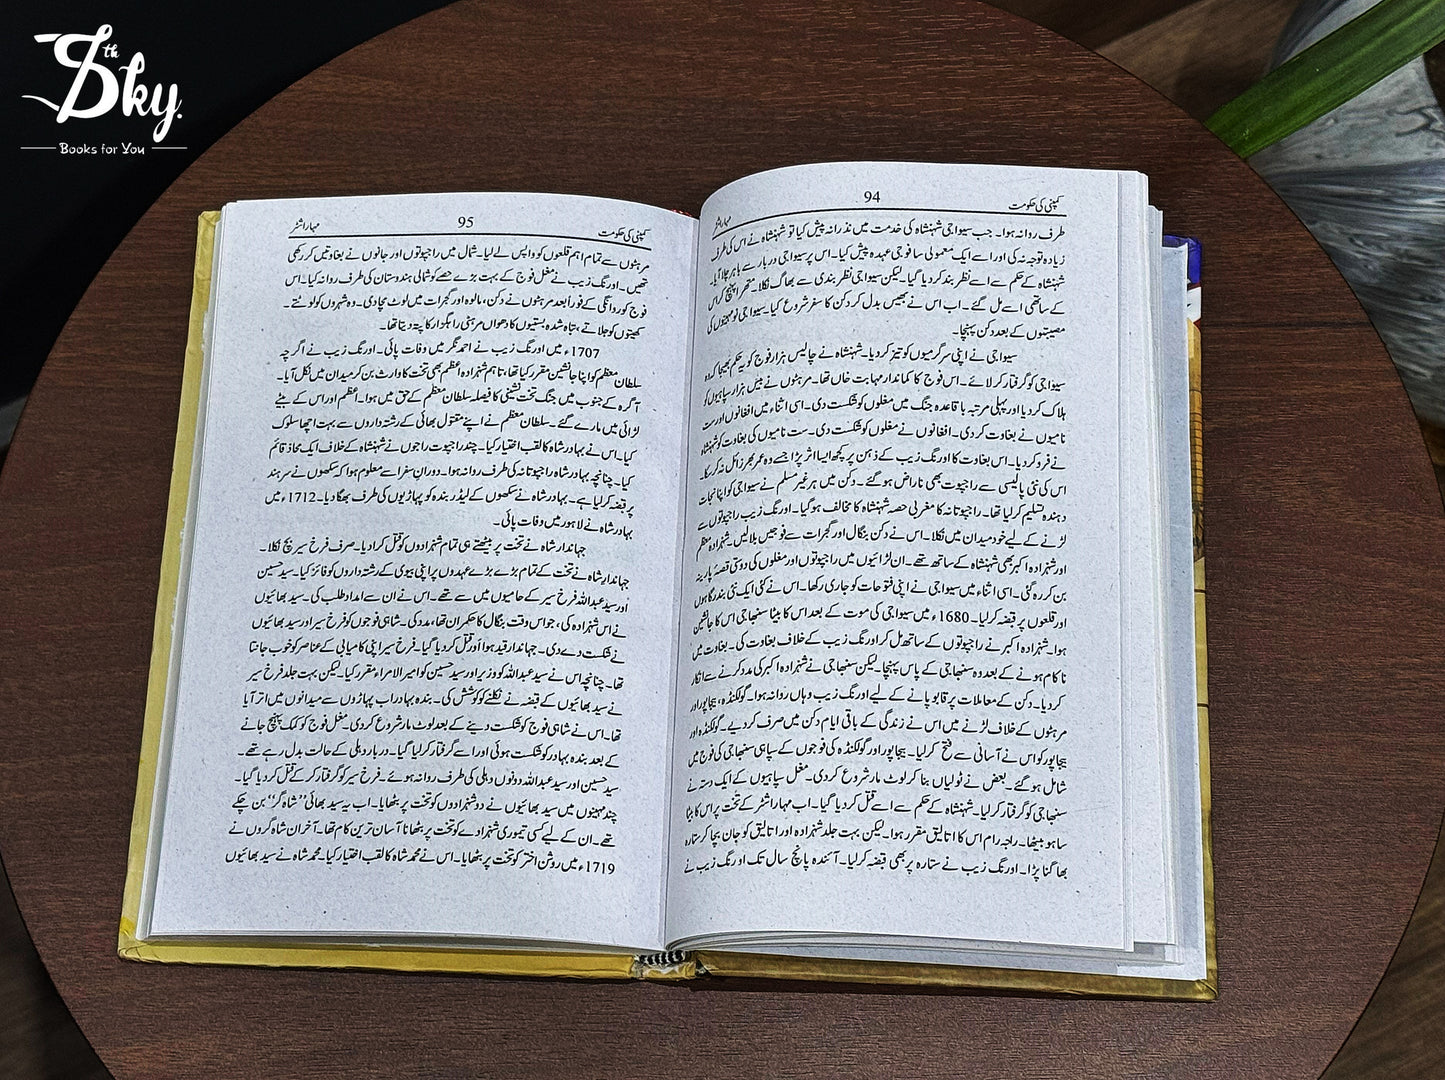 Sky th
Books for You
کمپنی کی حکومت 94 مہاراشٹر
طرف روانہ ہوا۔ جب سیواجی شہنشاہ کی خدمت میں نذرانہ پیش کیا تو شہنشاہ نے اس کی طرف
زیادہ توجہ نہ کی اور اسے ایک معمولی سا فوجی عہدہ پیش کیا۔ اس پر سیواجی دربار سے باہر چلا آیا۔
شہنشاہ کے حکم سے اسے نظر بند کر دیا گیا۔ لیکن سیواجی نظر بندی سے بھاگ نکلا۔ متھرا پہنچ کر اس
کے ساتھی اسے مل گئے۔ اب اس نے بھیس بدل کر دکن کا سفر شروع کیا۔ سیواجی نو مہینوں کی
مصیبتوں کے بعد دکن پہنچا۔
سیواجی نے اپنی سرگرمیوں کو تیز کر دیا۔ شہنشاہ نے چالیس ہزار فوج کو یہ حکم بھیجا کہ وہ
سیواجی کو گرفتار کر لائے۔ اس فوج کا کماندار مہابت خاں تھا۔ مرہٹوں نے بیس ہزار سپاہیوں کو
ہلاک کر دیا اور پہلی مرتبہ باقاعدہ جنگ میں مغلوں کو شکست دی۔ اسی اثناء میں افغانوں اور ست
نامیوں نے بغاوت کر دی۔ افغانوں نے مغلوں کو شکست دی۔ ست نامیوں کی بغاوت کو شہنشاہ
نے فرو کر دیا۔ اس بغاوت کا اورنگ زیب کے ذہن پر کچھ ایسا اثر پڑا جسے وہ عمر بھر زائل نہ کر سکا۔
اس کی نئی پالیسی سے راجپوت بھی ناراض ہو گئے۔ دکن میں ہر غیر مسلم نے سیواجی کو اپنا نجات
دہندہ تسلیم کر لیا تھا۔ راجپوتانہ کا مغربی حصہ شہنشاہ کا مخالف ہو گیا۔ اورنگ زیب راجپوتوں سے
لڑنے کے لیے خود میدان میں نکلا۔ اس نے دکن بنگال اور گجرات سے فوجیں بلالیں۔ شہزادہ معظم
اور شہزادہ اکبر بھی شہنشاہ کے ساتھ تھے۔ ان لڑائیوں میں راجپوتوں اور مغلوں کی دوستی قصہ پارینہ
بن کر رہ گئی۔ اسی اثناء میں سیواجی نے اپنی فتوحات کو جاری رکھا۔ اس نے کئی ایک نئی بندرگاہوں
اور قلعوں پر قبضہ کر لیا۔ 1680ء میں سیواجی کی موت کے بعد اس کا بیٹا سنبھاجی اس کا جانشین
ہوا۔ شہزادہ اکبر نے راجپوتوں کے ساتھ مل کر اورنگ زیب کے خلاف بغاوت کی۔ بغاوت میں
ناکام ہونے کے بعد وہ سنبھاجی کے پاس پہنچا۔ لیکن سنبھاجی نے شہزادہ اکبر کی مدد کرنے سے انکار
کر دیا۔ دکن کے معاملات پر قابو پانے کے لیے اورنگ زیب وہاں روانہ ہوا۔ گولکنڈہ، بیجاپور اور
مرہٹوں کے خلاف لڑنے میں اس نے زندگی کے باقی ایام دکن میں صرف کر دیے۔ گولکنڈہ اور
بیجاپور کو اس نے آسانی سے فتح کر لیا۔ بیجاپور اور گولکنڈہ کی فوجوں کے سپاہی سنبھاجی کی فوج میں
شامل ہو گئے۔ بعض نے ٹولیاں بنا کر لوٹ مار شروع کر دی۔ مغل سپاہیوں کے ایک دستہ نے
سنبھاجی کو گرفتار کر لیا۔ شہنشاہ کے حکم سے اسے قتل کر دیا گیا۔ اب مہاراشٹر کے تخت پر اس کا بیٹا
ساہو بیٹھا۔ راجہ رام اس کا اتالیق مقرر ہوا۔ لیکن بہت جلد شہزادہ اور اتالیق کو جان بچا کر ستارہ
بھاگنا پڑا۔ اورنگ زیب نے ستارہ پر بھی قبضہ کر لیا۔ آئندہ پانچ سال تک اورنگ زیب نے
کمپنی کی حکومت 95 مہاراشٹر
مرہٹوں سے تمام اہم قلعوں کو واپس لے لیا۔ شمال میں راجپوتوں اور جاٹوں نے بغاوتیں کر رکھی
تھیں۔ اورنگ زیب نے مغل فوج کے بہت بڑے حصے کو شمالی ہندوستان کی طرف روانہ کیا۔ اس
فوج کو روانگی کے فوراً بعد مرہٹوں نے دکن، مالوہ اور گجرات میں لوٹ مچا دی۔ وہ شہروں کو لوٹتے۔
کھیتوں کو جلاتے، تباہ شدہ بستیوں کا دھواں مرہٹی راہگزار کا پتہ دیتا تھا۔
1707ء میں اورنگ زیب نے احمد نگر میں وفات پائی۔ اورنگ زیب نے اگرچہ
سلطان معظم کو اپنا جانشین مقرر کیا تھا، تاہم شہزادہ اعظم بھی تخت کا وارث بن کر میدان میں نکل آیا۔
آگرہ کے جنوب میں جنگ تخت نشینی کا فیصلہ سلطان معظم کے حق میں ہوا۔ اعظم اور اس کے بیٹے
لڑائی میں مارے گئے۔ سلطان معظم نے اپنے مقتول بھائی کے رشتہ داروں سے بہت اچھا سلوک
کیا۔ اس نے بہادر شاہ کا لقب اختیار کیا۔ چند راجپوت راجوں نے شہنشاہ کے خلاف ایک محاذ قائم
کیا۔ چنانچہ بہادر شاہ راجپوتانہ کی طرف روانہ ہوا۔ دوران سفر اسے معلوم ہوا کہ سکھوں نے سرہند
پر قبضہ کر لیا ہے۔ بہادر شاہ نے سکھوں کے لیڈر بندہ کو پہاڑیوں کی طرف بھگا دیا۔ 1712ء میں
بہادر شاہ نے لاہور میں وفات پائی۔
جہاندار شاہ نے تخت پر بیٹھتے ہی تمام شہزادوں کو قتل کرا دیا۔ صرف فرخ سیر بچ نکلا۔
جہاندار شاہ نے تخت کے تمام بڑے بڑے عہدوں پر اپنی بیوی کے رشتہ داروں کو فائز کیا۔ سید حسین
اور سید عبداللہ فرخ سیر کے حامیوں میں سے تھے۔ اس نے ان سے امداد طلب کی۔ سید بھائیوں
نے اس شہزادہ کی، جو اس وقت بنگال کا حکمران تھا، مدد کی۔ شاہی فوجوں کو فرخ سیر اور سید بھائیوں
نے شکست دے دی۔ جہاندار قید ہوا اور قتل کر دیا گیا۔ فرخ سیر اپنی کامیابی کے عناصر کو خوب جانتا
تھا۔ چنانچہ اس نے سید عبداللہ کو وزیر اور سید حسین کو امیر الامراء مقرر کیا۔ لیکن بہت جلد فرخ سیر
نے سید بھائیوں کے قبضہ نے نکلنے کو کوشش کی۔ بندہ بہادر اب پہاڑوں سے میدانوں میں اتر آیا
تھا۔ اس نے شاہی فوج کو شکست دینے کے بعد لوٹ مار شروع کر دی۔ مغل فوج کو کمک پہنچ جانے
کے بعد بندہ بہادر کو شکست ہوئی اور اسے گرفتار کر لیا گیا۔ دربار دہلی کے حالت بدل رہے تھے۔
سید حسین اور سید عبداللہ دونوں دہلی کی طرف روانہ ہوئے۔ فرخ سیر کو گرفتار کر کے قتل کر دیا گیا۔
چند مہینوں میں سید بھائیوں نے دو شہزادوں کو تخت پر بٹھایا۔ اب یہ سید بھائی ”شاہ گر“ بن چکے
تھے۔ ان کے لیے کسی تیموری شہزادے کو تخت پر بٹھانا آسان ترین کام تھا۔ آخر ان شاہ گروں نے
1719ء میں روشن اختر کو تخت پر بٹھایا۔ اس نے محمد شاہ کا لقب اختیار کیا۔ محمد شاہ نے سید بھائیوں